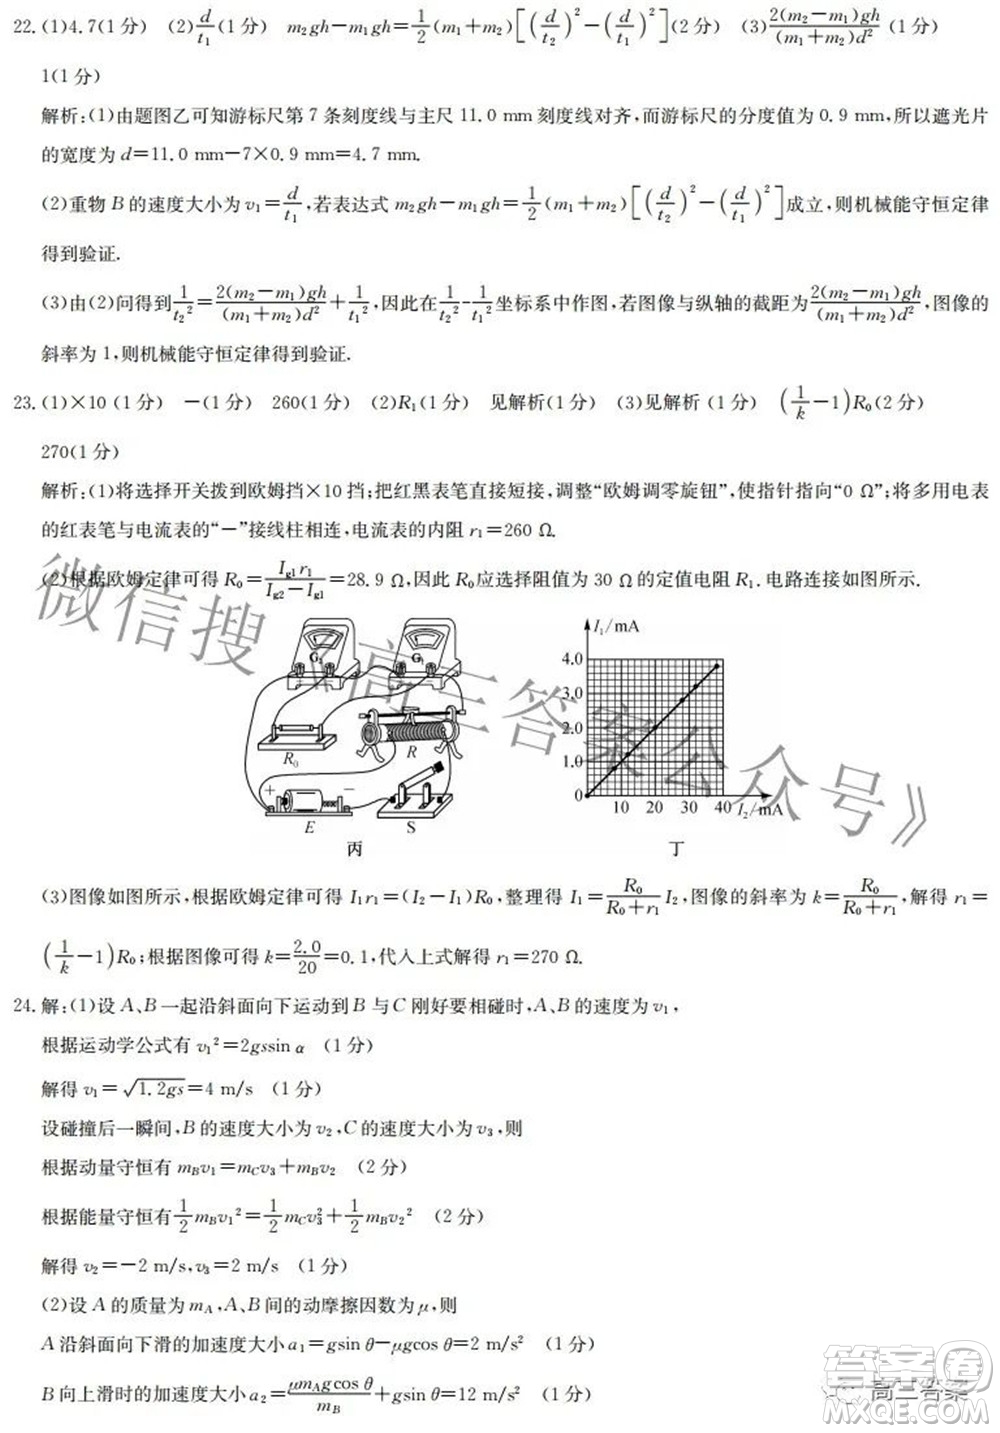 22.(1)4.7(1分) (2)d/t₁(1分) m₂gh−m₁gh=1/2(m₁+m₂)[(d/t₂)²−(d/t₁)²](2分) (3)2(m₂−m₁)gh/(m₁+m₂)d²(1分)
1(1分)
解析:(1)由题图乙可知游标尺第7条刻度线与主尺11.0 mm刻度线对齐,而游标尺的分度值为0.9 mm,所以遮光片
的宽度为d=11.0 mm−7×0.9 mm=4.7 mm.
(2)重物B的速度大小为v₁=d/t₁,若表达式m₂gh−m₁gh=1/2(m₁+m₂)[(d/t₂)²−(d/t₁)²]成立,则机械能守恒定律
得到验证.
(3)由(2)问得到1/t₂²=2(m₂−m₁)gh/(m₁+m₂)d²+1/t₁²,因此在1/t₂²-1/t₁²坐标系中作图,若图像与纵轴的截距为2(m₂−m₁)gh/(m₁+m₂)d²,图像的
斜率为1,则机械能守恒定律得到验证.
23.(1)×10(1分) −(1分) 260(1分) (2)R₁(1分) 见解析(1分) (3)见解析(1分) (1/k−1)R₀(2分)
270(1分)
解析:(1)将选择开关拨到欧姆挡×10挡;把红黑表笔直接短接,调整“欧姆调零旋钮”,使指针指向“0 Ω”;将多用电表
的红表笔与电流表的“−”接线柱相连,电流表的内阻r₁=260 Ω.
(2)根据欧姆定律可得R₀=I_g1 r₁/(I_g2−I_g1)=28.9 Ω,因此R₀应选择阻值为30 Ω的定值电阻R₁.电路连接如图所示.
G₂ G₁
R₀ R
+ −
E S
丙
I₁/mA
4.0
3.0
2.0
1.0
0 10 20 30 40 I₂/mA
丁
(3)图像如图所示,根据欧姆定律可得I₁r₁=(I₂−I₁)R₀,整理得I₁=R₀/(R₀+r₁) I₂,图像的斜率为k=R₀/(R₀+r₁),解得r₁=
(1/k−1)R₀;根据图像可得k=2.0/20=0.1,代入上式解得r₁=270 Ω.
24.解:(1)设A、B一起沿斜面向下运动到B与C刚好要相碰时,A、B的速度为v₁,
根据运动学公式有v₁²=2gssin α (1分)
解得v₁=√1.2gs=4 m/s (1分)
设碰撞后一瞬间,B的速度大小为v₂,C的速度大小为v₃,则
根据动量守恒有m_Bv₁=m_Cv₃+m_Bv₂ (2分)
根据能量守恒有1/2m_Bv₁²=1/2m_Cv₃²+1/2m_Bv₂² (2分)
解得v₂=−2 m/s,v₃=2 m/s (1分)
(2)设A的质量为m_A,A、B间的动摩擦因数为μ,则
A沿斜面向下滑的加速度大小a₁=gsin θ−μgcos θ=2 m/s² (1分)
B向上滑时的加速度大小a₂=μm_Agcos θ/m_B+gsin θ=12 m/s² (1分)
微信搜《高三答案公众号》
高三答案
答案圈
MXQE.COM